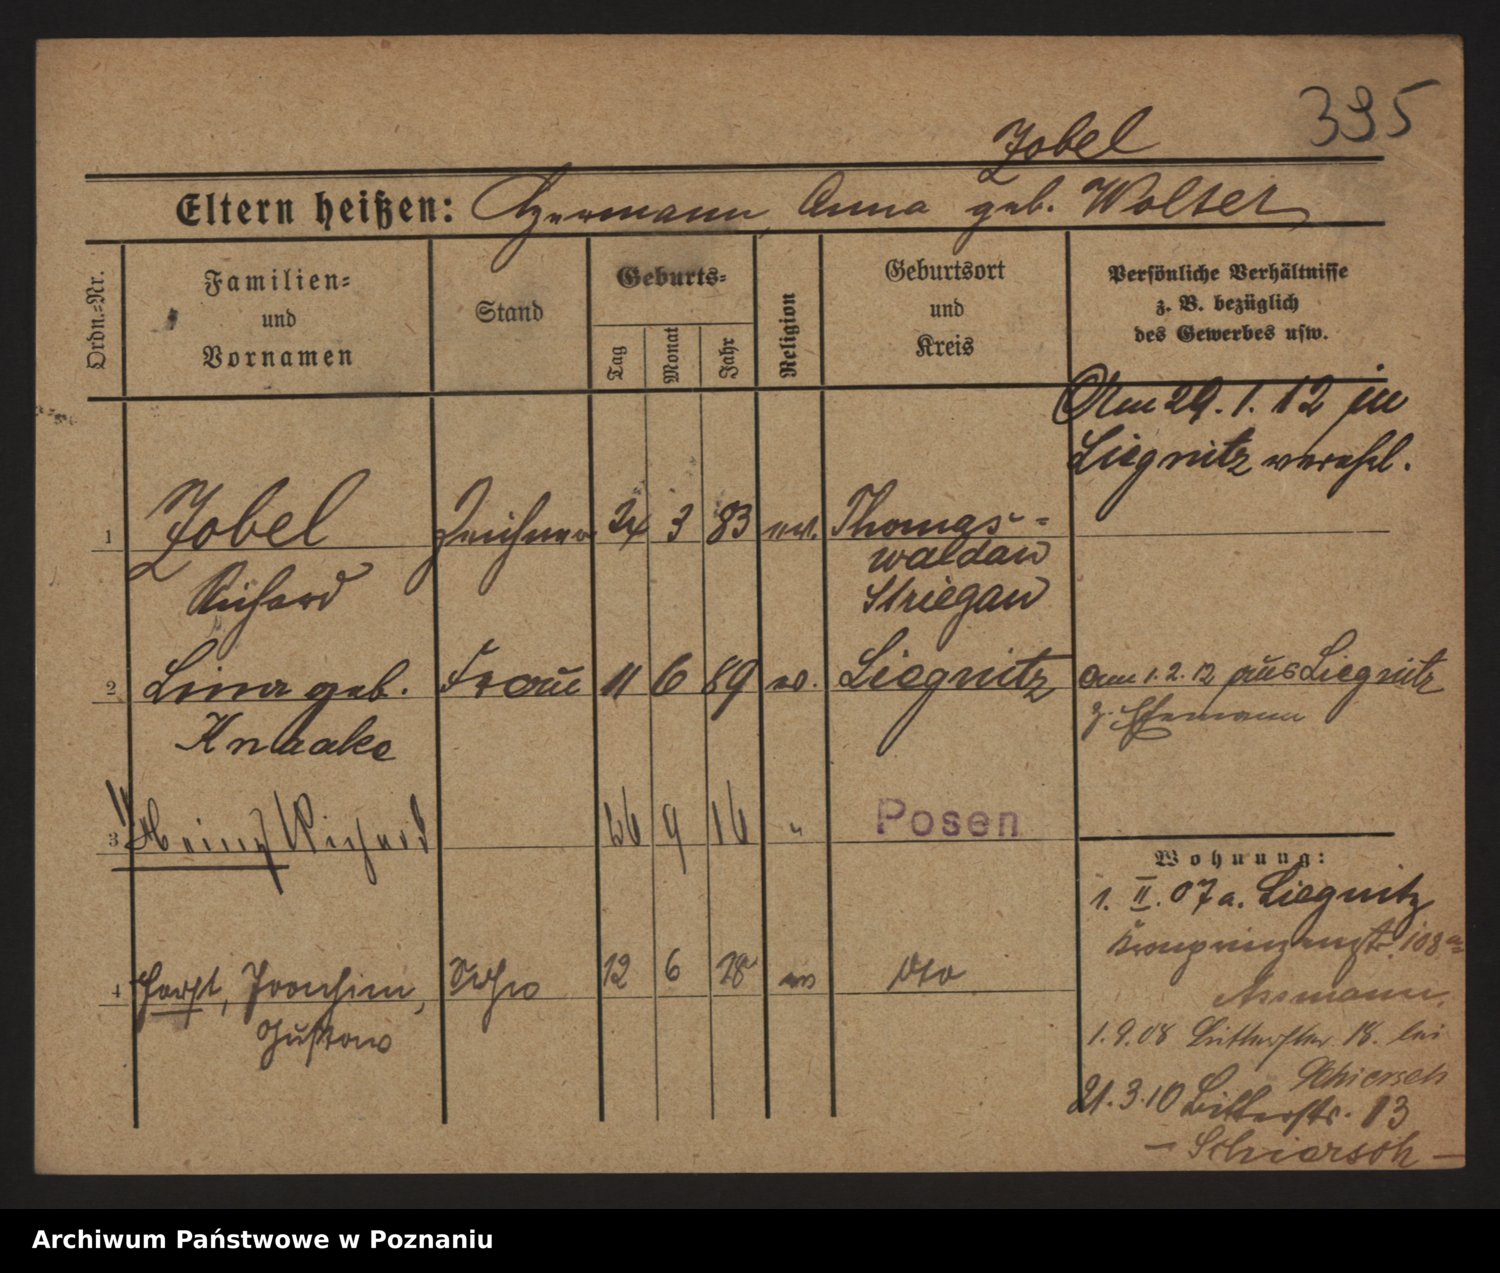 395
Zobel
Eltern heißen: Hermann, Anna geb. Wolter
Ordn.-Nr.
Familien-
und
Vornamen
Stand
Geburts-
Tag
Monat
Jahr
Religion
Geburtsort
und
Kreis
Persönliche Verhältnisse
z. B. bezüglich
des Gewerbes usw.
Am 29.1.12 in
Liegnitz verehl.
1 Zobel Zeichner 24 3 83 ev. Thomas-
waldau
Richard Striegau
2 Lina geb. Frau 11 6 89 ev. Liegnitz am 1.2.12 aus Liegnitz
Knaake z. Ehemann
3 Heinz Richard 26 9 16 " Posen
Wohnung:
1. II. 07 a. Liegnitz
Kronprinzenstr. 108a
4 Horst, Joachim, Sohn 12 6 18 ev dto
Gustav
Assmann.
1.9.08 18. bei
Schiersch
21.3.10 Bitterstr. 13
- Schiersch -
Archiwum Państwowe w Poznaniu